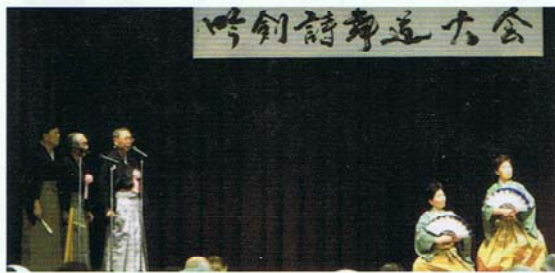 吟剣詩舞道大会